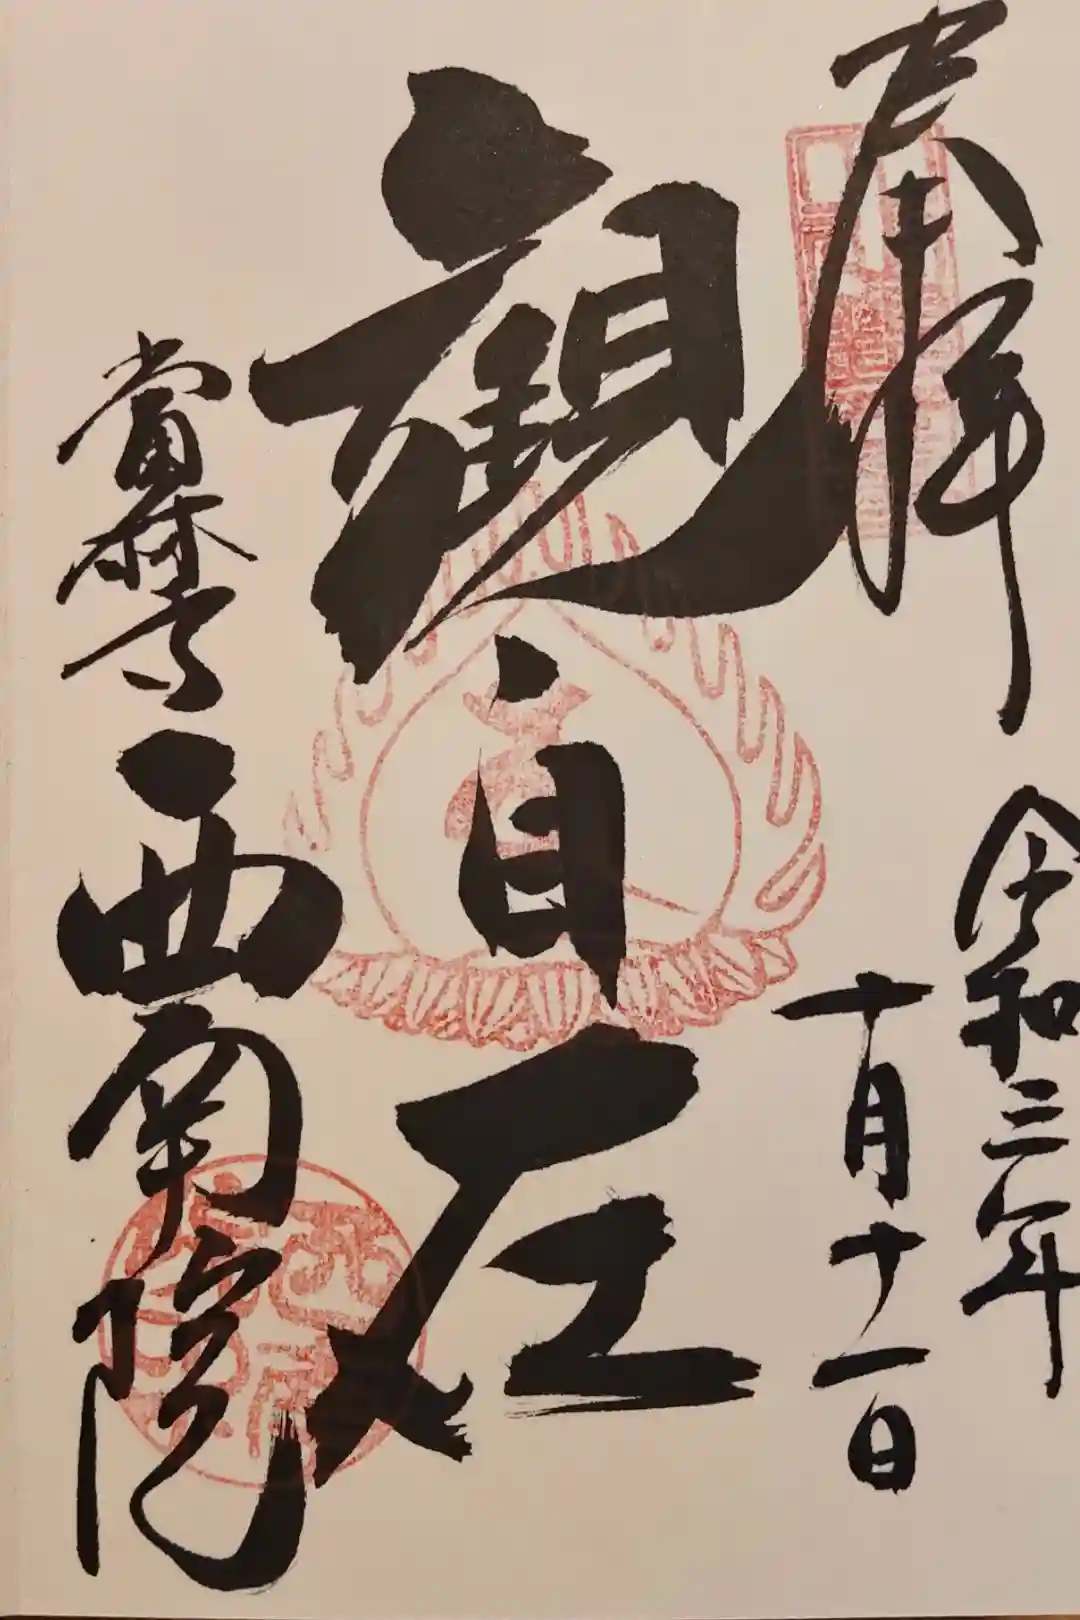 奉拝
令和三年
十月十一日
観自在
當麻寺
西南院